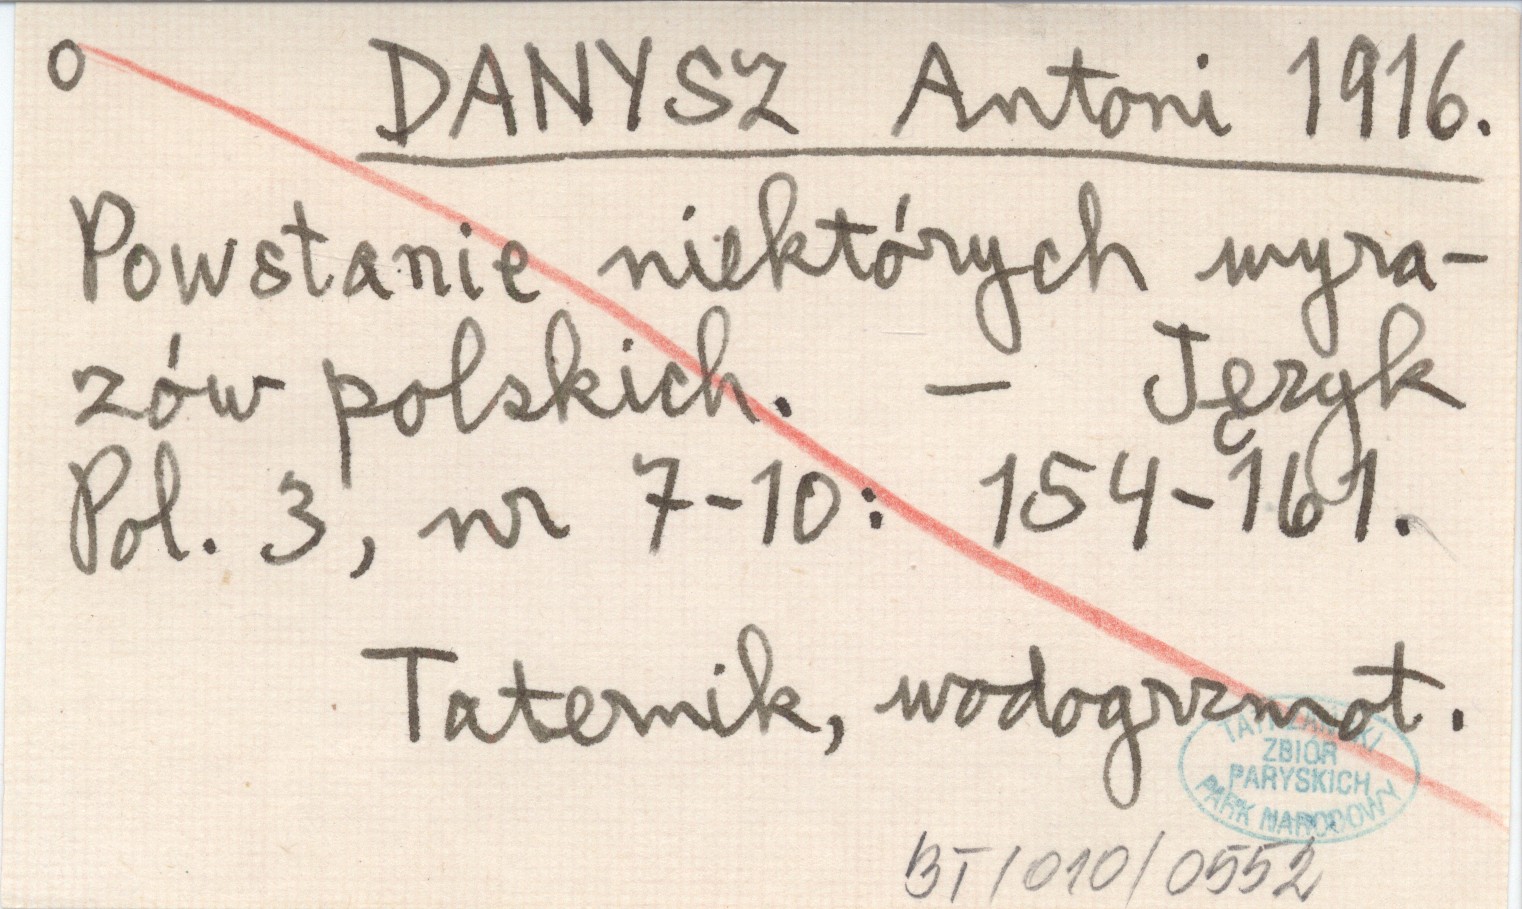 o DANYSZ Antoni 1916.
Powstanie niektórych wyra-
zów polskich. – Język
Pol. 3, nr 7-10: 154-161.
Taternik, wodogrzmot.
TATRZAŃSKI
ZBIÓR
PARYSKICH
PARK NARODOWY
BT/010/0552